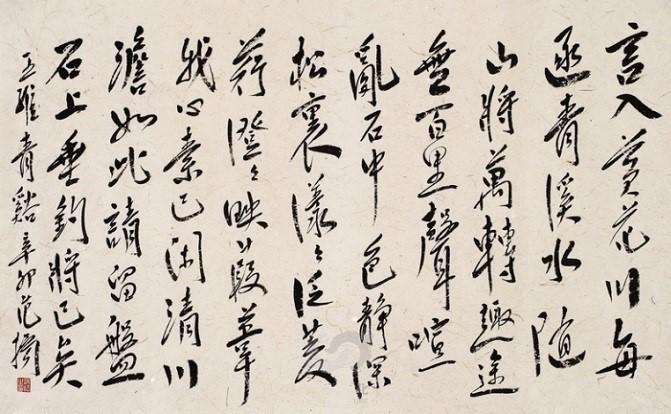 言入黄花川每
逐青溪水随
山將萬轉趣途
無百里聲喧
亂石中色静深
松裏漾々泛菱
荇澄々映葭葦
我心素已闲清川
澹如此請留盤
石上垂釣將已矣
王維青谿辛卯范